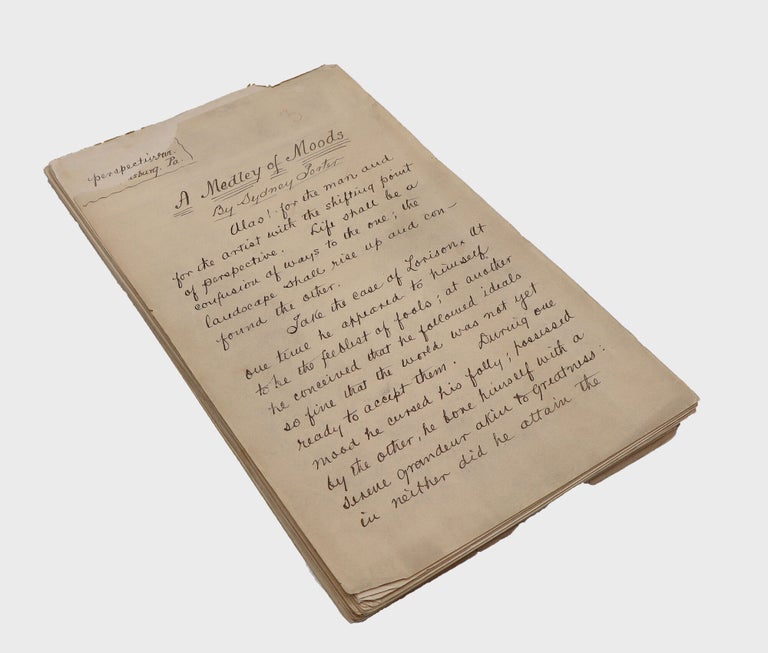 perspective
sburg, Pa.
A Medley of Moods
By Sydney Porter
Alas! for the man and
for the artist with the shifting point
of perspective. Life shall be a
confusion of ways to the one; the
landscape shall rise up and con-
found the other.
Take the case of Lorison. At
one time he appeared to himself
to be the feeblest of fools; at another
he conceived that he followed ideals
so fine that the world was not yet
ready to accept them. During one
mood he cursed his folly; possessed
by the other, he bore himself with a
serene grandeur akin to Greatness:
in neither did he attain the